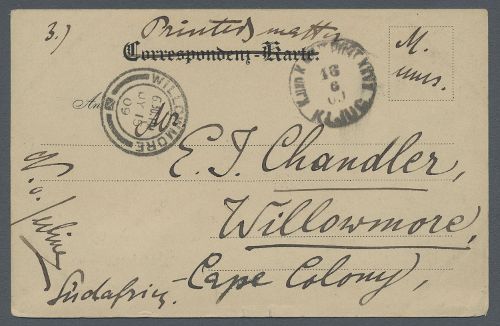 3.)
Printed matter
Correspondenz-Karte.
M.
An
WILLOWMORE
JY 15
09
KLJUČ
Mr
E. J. Chandler,
Willowmore,
Cape Colony,
Südafrika.